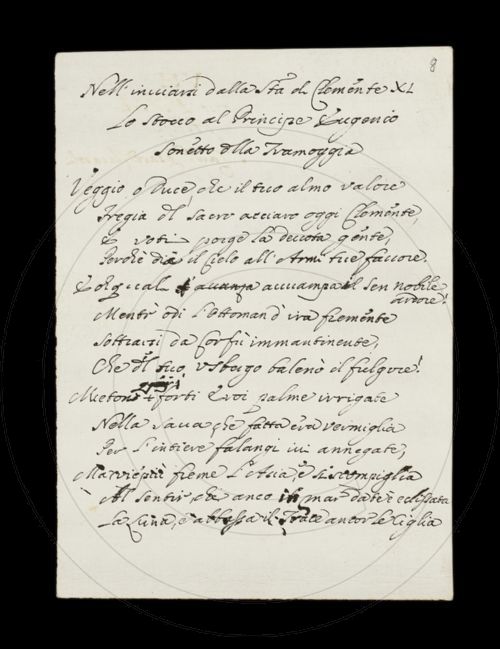 8
Nell' inviarsi dalla Stà di Clemente XI
Lo stocco al Principe Eugenio
Sonetto della Tramoggia
Veggio o Duce, che il tuo almo valore
Fregia del sacro acciaro oggi Clemente,
E voti porge la devota gente,
Perchè dia il Cielo all'Armi tue favore.
accampa il sen nobile
ardore!
Mentr' odi l'Ottomand' ira fremente
Sottrarsi da Corfù immantinente,
Che del tuo Usbergo balenò il fulgore!
Mieton forti Eroi palme irrigate
Nella Sava, che fatta era vermiglia
Per l'intiere falangi ivi annegate,
Ma vieppiù freme l'Asia, e si scompiglia
Al sentir, che anco in mar da te ecclissata
La Luna, e abbassa il Trace ancor le Ciglia